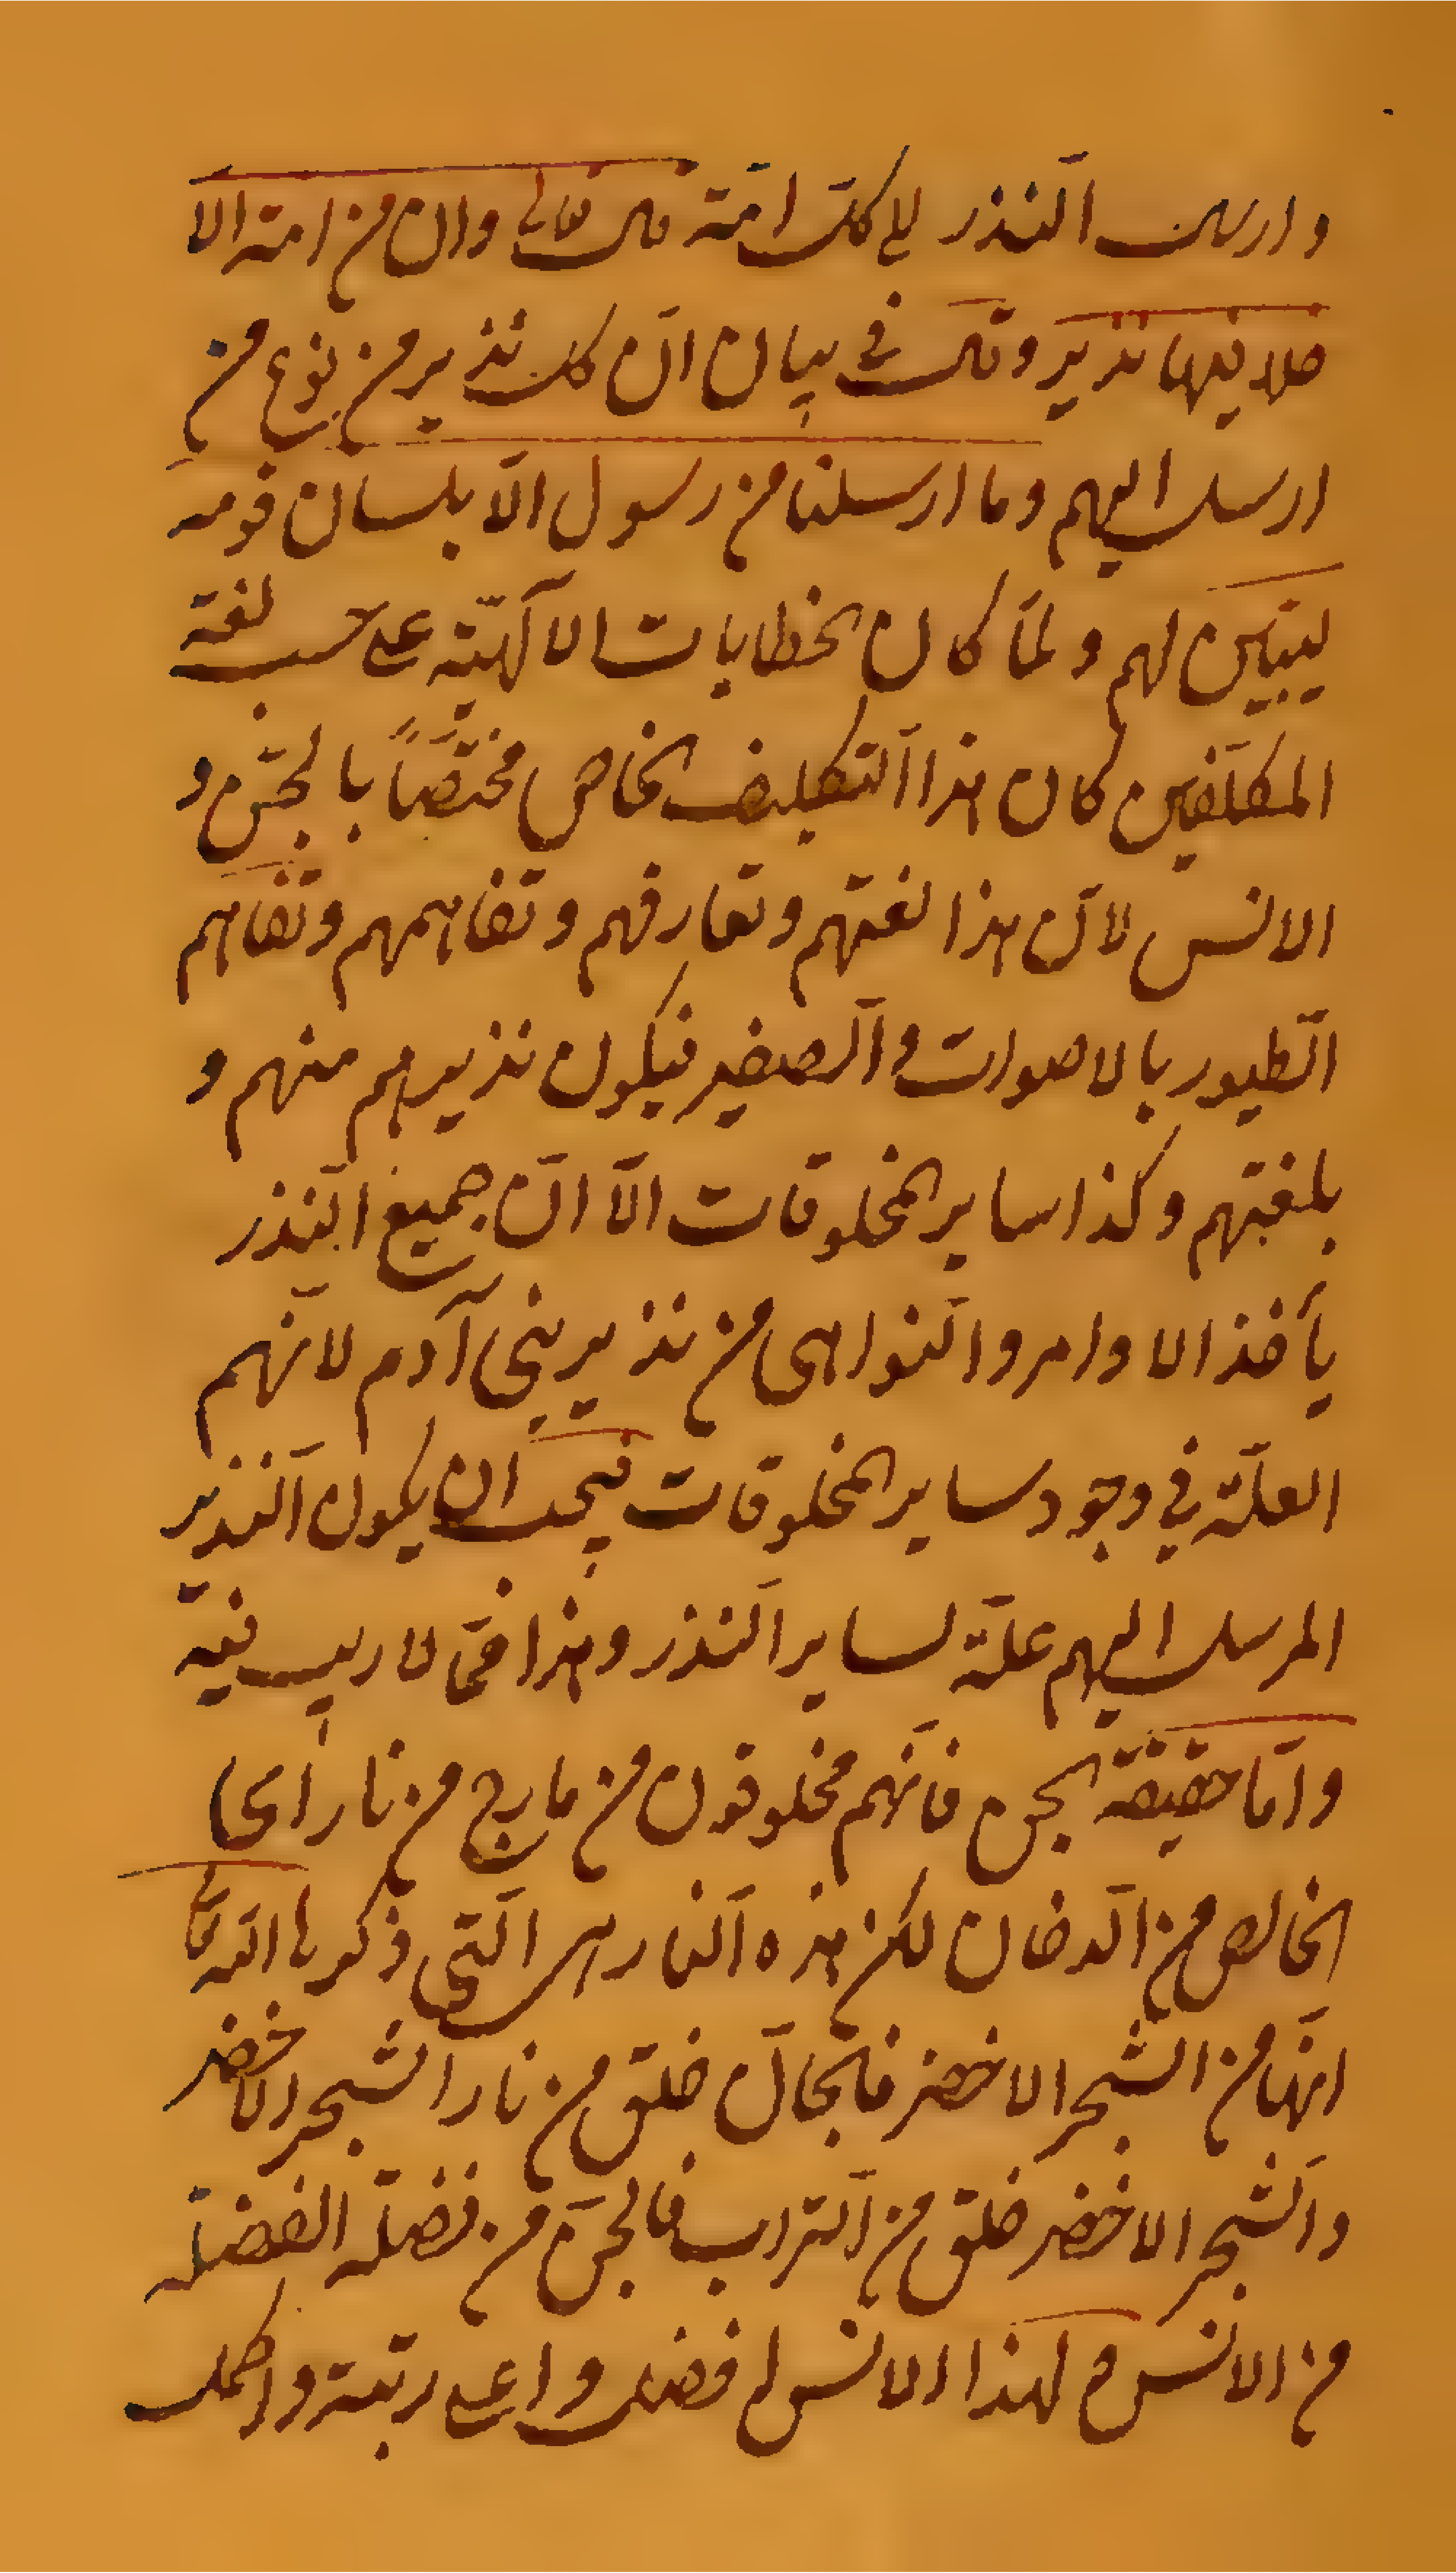 وارسل النذر الى كل امّة قال تعالى وان من امة الا
خلا فيها نذير وقال في بيان انّ كل نذير من نوع من
ارسل اليهم وما ارسلنا من رسول الّا بلسان قومه
ليبيّن لهم ولمّا كان الخطابات الالٓهيّة على حسب لغة
المكلّفين كان هذا التّكليف الخاص مختصّاً بالجنّ و
الانس لانّ هذا لغتهم وتعارفهم وتفاهمهم وتفاهم
الطّيور بالاصوات والصّفير فيكون نذيرهم منهم و
بلغتهم وكذا ساير المخلوقات الّا انّ جميع النّذر
يأخذ الاوامر والنّواهى من نذير بنى آدم لانّهم
العلّة في وجود ساير المخلوقات فيجب ان يكون النّذير
المرسل اليهم علّة لساير النّذر وهذا ممّا لا ريب فيه
وامّا حقيقة الجن فانّهم مخلوقون من مارج من نار اى
الخالص من الدّخان لكن هذه النّار هى الّتى ذكرها اللّه تعالى
انّها من الشّجر الاخضر فالجانّ خلق من نار الشّجر الاخضر
والشّجر الاخضر خلق من التّراب فالجنّ من فضلة الفضلة
من الانس ولهذا الانس افضل واعلى رتبة واكمل